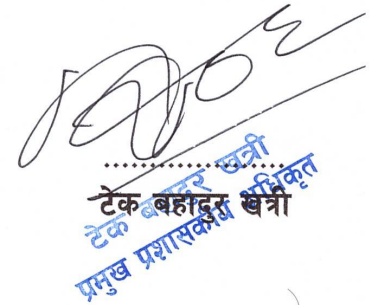 ....................
टेक बहादुर खत्री
टेक बहादुर खत्री
प्रमुख प्रशासकीय अधिकृत